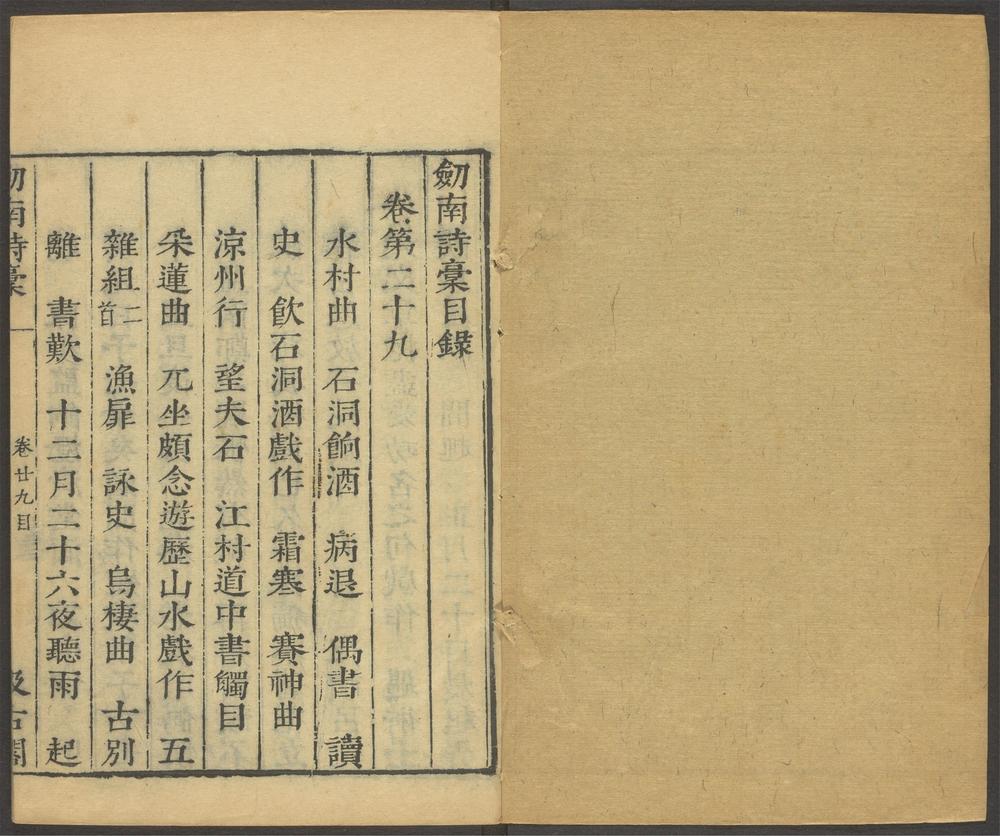 劒南詩稾目錄
卷第二十九
水村曲 石洞餉酒 病退 偶書 讀
史 飲石洞酒戲作 霜寒 賽神曲
涼州行 望夫石 江村道中書觸目
采蓮曲 兀坐頗念遊歷山水戲作 五
雜組二首 漁扉 詠史 烏棲曲 古別
離 書歎 十二月二十六夜聽雨 起
劒南詩稾 卷廿九目 汲古閣